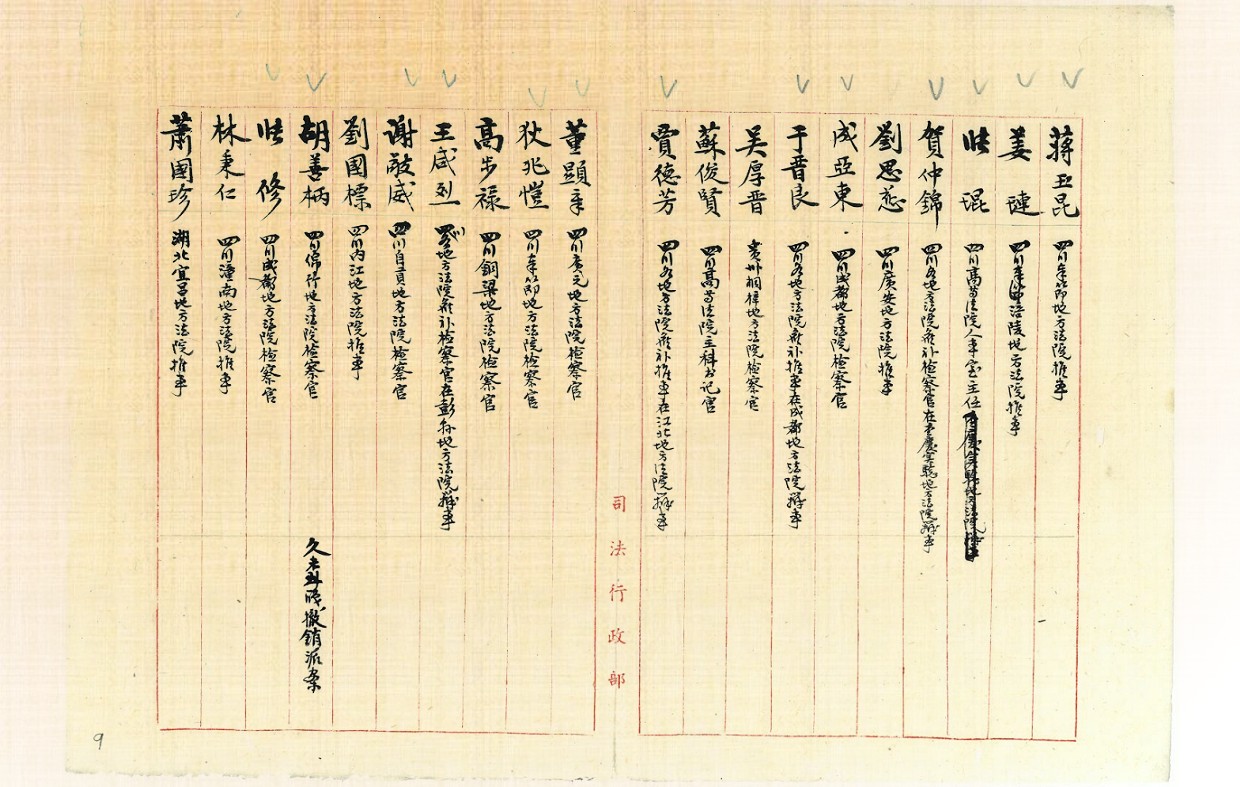 蔣五昆 四川奉節地方法院推事
姜璉 四川涪陵地方法院推事
琨 四川高等法院人事室主任
賀仲錦 四川各地方法院候補檢察官在重慶實驗地方法院辦事
劉思慈 四川廣安地方法院推事
成亞東 四川成都地方法院檢察官
于晋良 四川各地方法院候補推事在成都地方法院辦事
吴厚晋 貴州桐梓地方法院檢察官
蘇俊賢 四川高等法院主科书记官
賈德芳 四川各地方法院候補推事在江北地方法院辦事
司法行政部
董顯 四川廣元地方法院檢察官
狄兆愷 四川奉節地方法院檢察官
高步禄 四川銅梁地方法院檢察官
王威烈 四川各地方法院候补檢察官在彭縣地方法院辦事
謝敵威 四川自貢地方法院檢察官
劉國標 四川内江地方法院推事
胡善柄 四川綿竹地方法院檢察官 久未到職撤銷派案
修 四川成都地方法院檢察官
林秉仁 四川潼南地方法院推事
蕭國珍 湖北宜昌地方法院推事
9